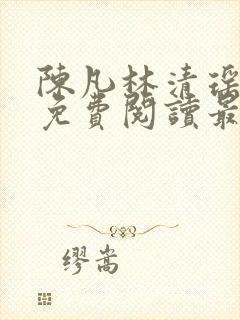 陳凡林清瑶
免費閱讀最
繆嵩